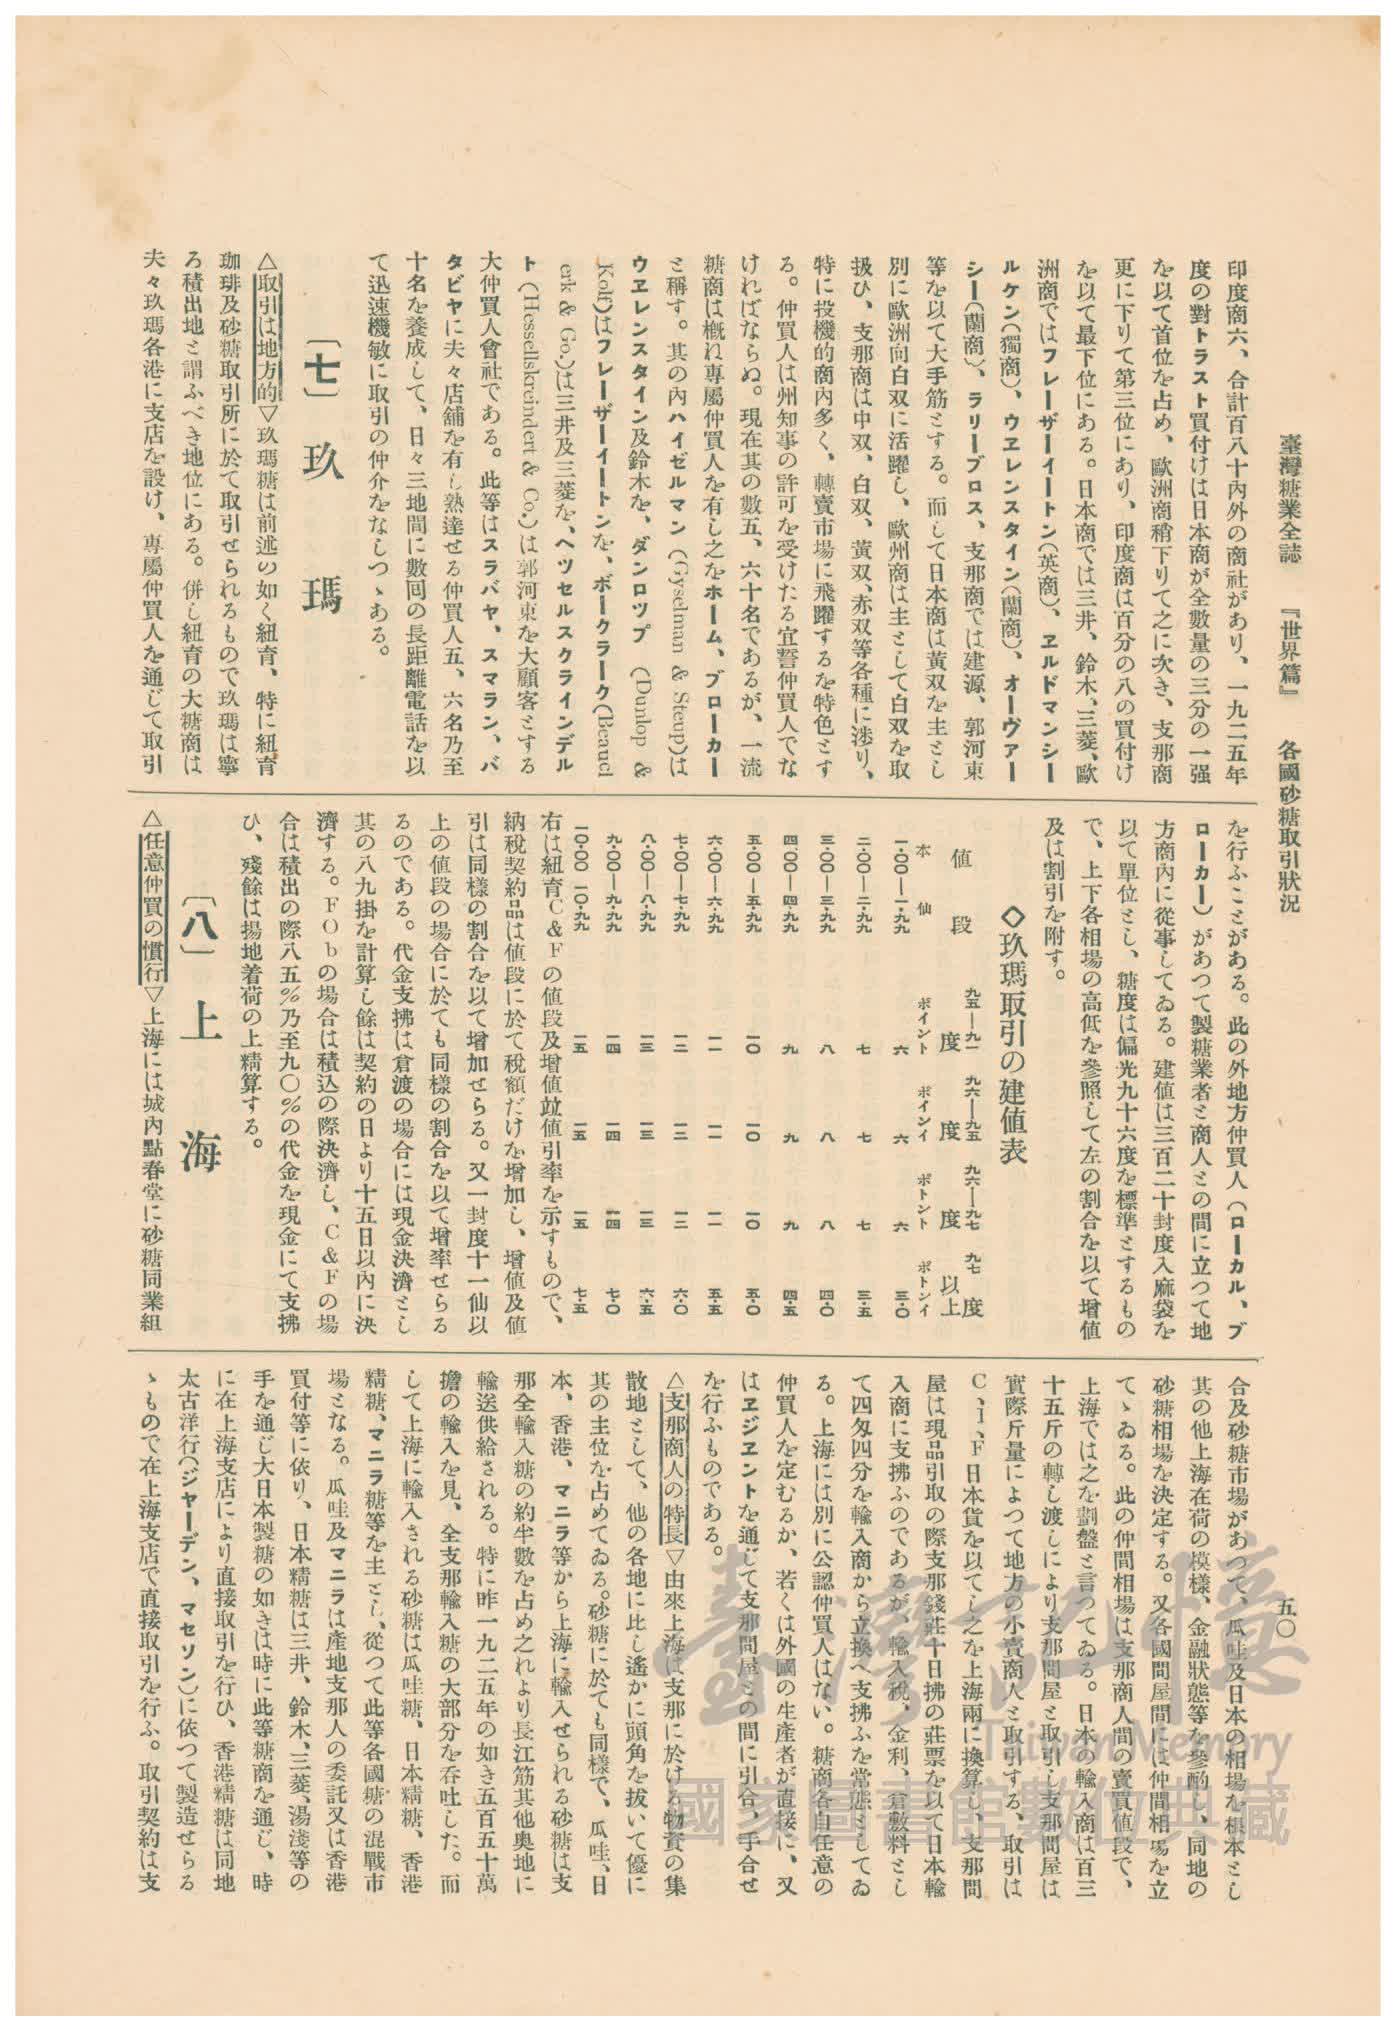 臺灣糖業全誌　『世界篇』　各國砂糖取引狀況
五〇
印度商六、合計百八十內外の商社があり、一九二五年
度の對トラスト買付けは日本商が全數量の三分の一强
を以て首位を占め、歐洲商稍下りて之に次き、支那商
更に下りて第三位にあり、印度商は百分の八の買付け
を以て最下位にある。日本商では三井、鈴木、三菱、歐
洲商ではフレーザーイートン(英商)、ヱルドマンシー
ルケン(獨商)、ウヱレンスタイン(蘭商)、オーヴァー
シー(蘭商)、ラリーブロス、支那商では建源、郭河東
等を以て大手筋とする。而して日本商は黃双を主とし
別に歐洲向白双に活躍し、歐州商は主として白双を取
扱ひ、支那商は中双、白双、黃双、赤双等各種に涉り、
特に投機的商內多く、轉賣市場に飛躍するを特色とす
る。仲買人は州知事の許可を受けたる宣誓仲買人でな
ければならぬ。現在其の數五、六十名であるが、一流
糖商は槪ね專屬仲買人を有し之をホーム、ブローカー
と稱す。其の內ハイゼルマン (Gyselman & Steup)は
ウヱレンスタイン及鈴木を、ダンロツプ (Dunlop &
Kolf)はフレーザーイートンを、ボークラーク(Beaucl
erk & Go.)は三井及三菱を、ヘツセルスクラインデル
ト (Hessellskreindert & Co.) は郭河東を大顧客とする
大仲買人會社である。此等はスラバヤ、スマラン、バ
タビヤに夫々店舖を有し熟達せる仲買人五、六名乃至
十名を養成して、日々三地間に數回の長距離電話を以
て迅速機敏に取引の仲介をなしつゝある。
〔七〕　玖　瑪
△取引は地方的▽玖瑪糖は前述の如く紐育、特に紐育
珈琲及砂糖取引所に於て取引せられるもので玖瑪は寧
ろ積出地と謂ふべき地位にある。倂し紐育の大糖商は
夫々玖瑪各港に支店を設け、專屬仲買人を通じて取引
を行ふことがある。此の外地方仲買人(ローカル、ブ
ローカー) があつて製糖業者と商人との間に立つて地
方商內に從事してゐる。建値は三百二十封度入麻袋を
以て單位とし、糖度は偏光九十六度を標準とするもの
で、上下各相場の高低を參照して左の割合を以て增値
及は割引を附す。
◇玖瑪取引の建値表
値段　九五—九一度　九六—九五度　九六—九七度　九七度以上
本仙　ポイント　ポイイン　ポトント　ポトンイ
一・〇〇—一・九九　六　六　六　三・〇
二・〇〇—二・九九　七　七　七　三・五
三・〇〇—三・九九　八　八　八　四・〇
四・〇〇—四・九九　九　九　九　四・五
五・〇〇—五・九九　一〇　一〇　一〇　五・〇
六・〇〇—六・九九　一一　一一　一一　五・五
七・〇〇—七・九九　一二　一二　一二　六・〇
八・〇〇—八・九九　一三　一三　一三　六・五
九・〇〇—九・九九　一四　一四　一四　七・〇
一〇・〇〇　一〇・九九　一五　一五　一五　七・五
右は紐育C&Fの値段及增値竝値引率を示すもので、
納稅契約品は値段に於て稅額だけを增加し、增値及値
引は同樣の割合を以て增加せらる。又一封度十一仙以
上の値段の場合に於ても同樣の割合を以て增率せらる
るのである。代金支拂は倉渡の場合には現金決濟とし
其の八九掛を計算し餘は契約の日より十五日以內に決
濟する。FObの場合は積込の際決濟し、C&Fの場
合は積出の際八五%乃至九〇%の代金を現金にて支拂
ひ、殘餘は揚地着荷の上精算する。
〔八〕　上　海
△任意仲買の慣行▽上海には城內點春堂に砂糖同業組
合及砂糖市場があつて、瓜哇及日本の相場を根本とし
其の他上海在荷の模樣、金融狀態等を參酌し、同地の
砂糖相場を決定する。又各國問屋間には仲間相場を立
てゝゐる。此の仲間相場は支那商人間の賣買値段で、
上海では之を劃盤と言つてゐる。日本の輸入商は百三
十五斤の轉し渡しにより支那問屋と取引し支那問屋は
實際斤量によつて地方の小賣商人と取引する、取引は
C、I、F日本貨を以てし之を上海兩に換算し、支那問
屋は現品引取の際支那錢莊十日拂の莊票を以て日本輸
入商に支拂ふのであるが、輸入稅、金利、倉敷料とし
て四匁四分を輸入商から立換へ支拂ふを常態としてゐ
る。上海には別に公認仲買人はない。糖商各自任意の
仲買人を定むるか、若くは外國の生產者が直接に、又
はヱジヱントを通じて支那問屋との間に引合、手合せ
を行ふものである。
△支那商人の特長▽由來上海は支那に於ける物資の集
散地として、他の各地に比し遙かに頭角を拔いて優に
其の主位を占めてゐる。砂糖に於ても同樣で、瓜哇、日
本、香港、マニラ等から上海に輸入せられる砂糖は支
那全輸入糖の約半數を占め之れより長江筋其他奧地に
輸送供給される。特に昨一九二五年の如き五百五十萬
擔の輸入を見、全支那輸入糖の大部分を吞吐した。而
して上海に輸入される砂糖は瓜哇糖、日本精糖、香港
精糖、マニラ糖等を主とし、從つて此等各國糖の混戰市
場となる。瓜哇及マニラは產地支那人の委託又は香港
買付等に依り、日本精糖は三井、鈴木、三菱、湯淺等の
手を通じ大日本製糖の如きは時に此等糖商を通じ、時
に在上海支店により直接取引を行ひ、香港精糖は同地
太古洋行(ジヤーデン、マセソン)に依つて製造せらる
ゝもので在上海支店で直接取引を行ふ。取引契約は支
臺灣記憶
Taiwan Memory
國家圖書館數位典藏